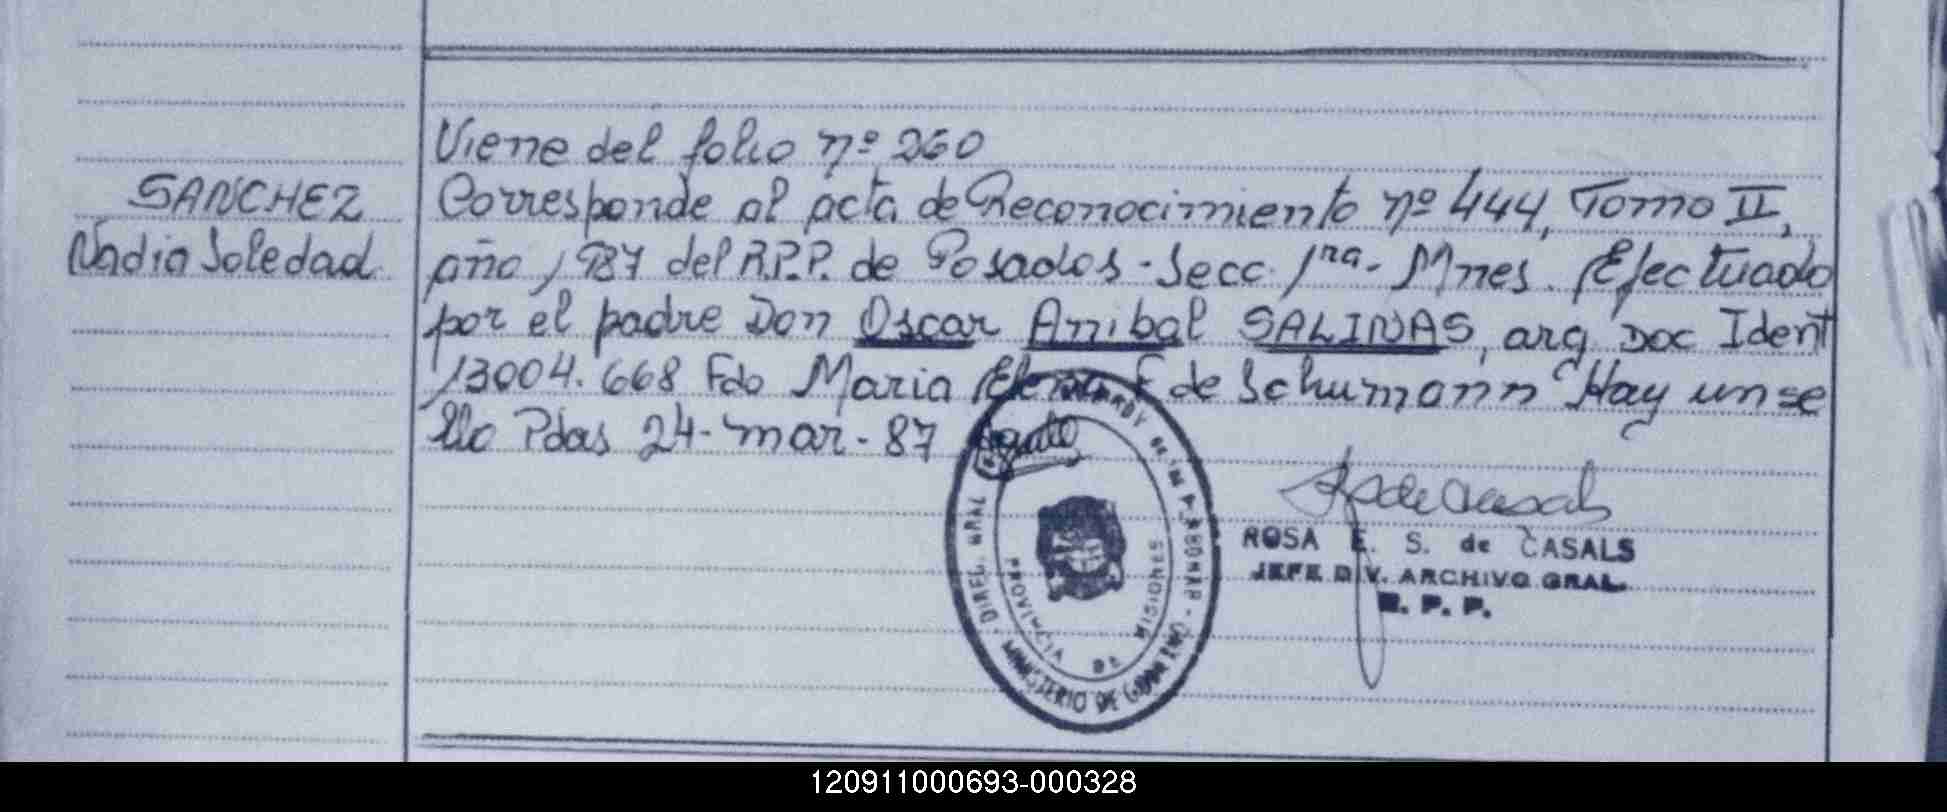 Viene del folio nº 260
SANCHEZ
Nadia Soledad
Corresponde al acta de Reconocimiento nº 444, Tomo II,
año 1987 del R.P.P. de Posadas - Secc. 1ra. Mnes. Efectuado
por el padre Don Oscar Anibal SALINAS, arg Doc Ident
13004.668 Fdo Maria Elena F de Schumann Hay un se
llo Pdas 24-mar-87
DIREC. GRAL
MINISTERIO DE
PROVINCIA DE MISIONES
ROSA E. S. de CASALS
JEFE DIV. ARCHIVO GRAL.
R. P. P.
120911000693-000328